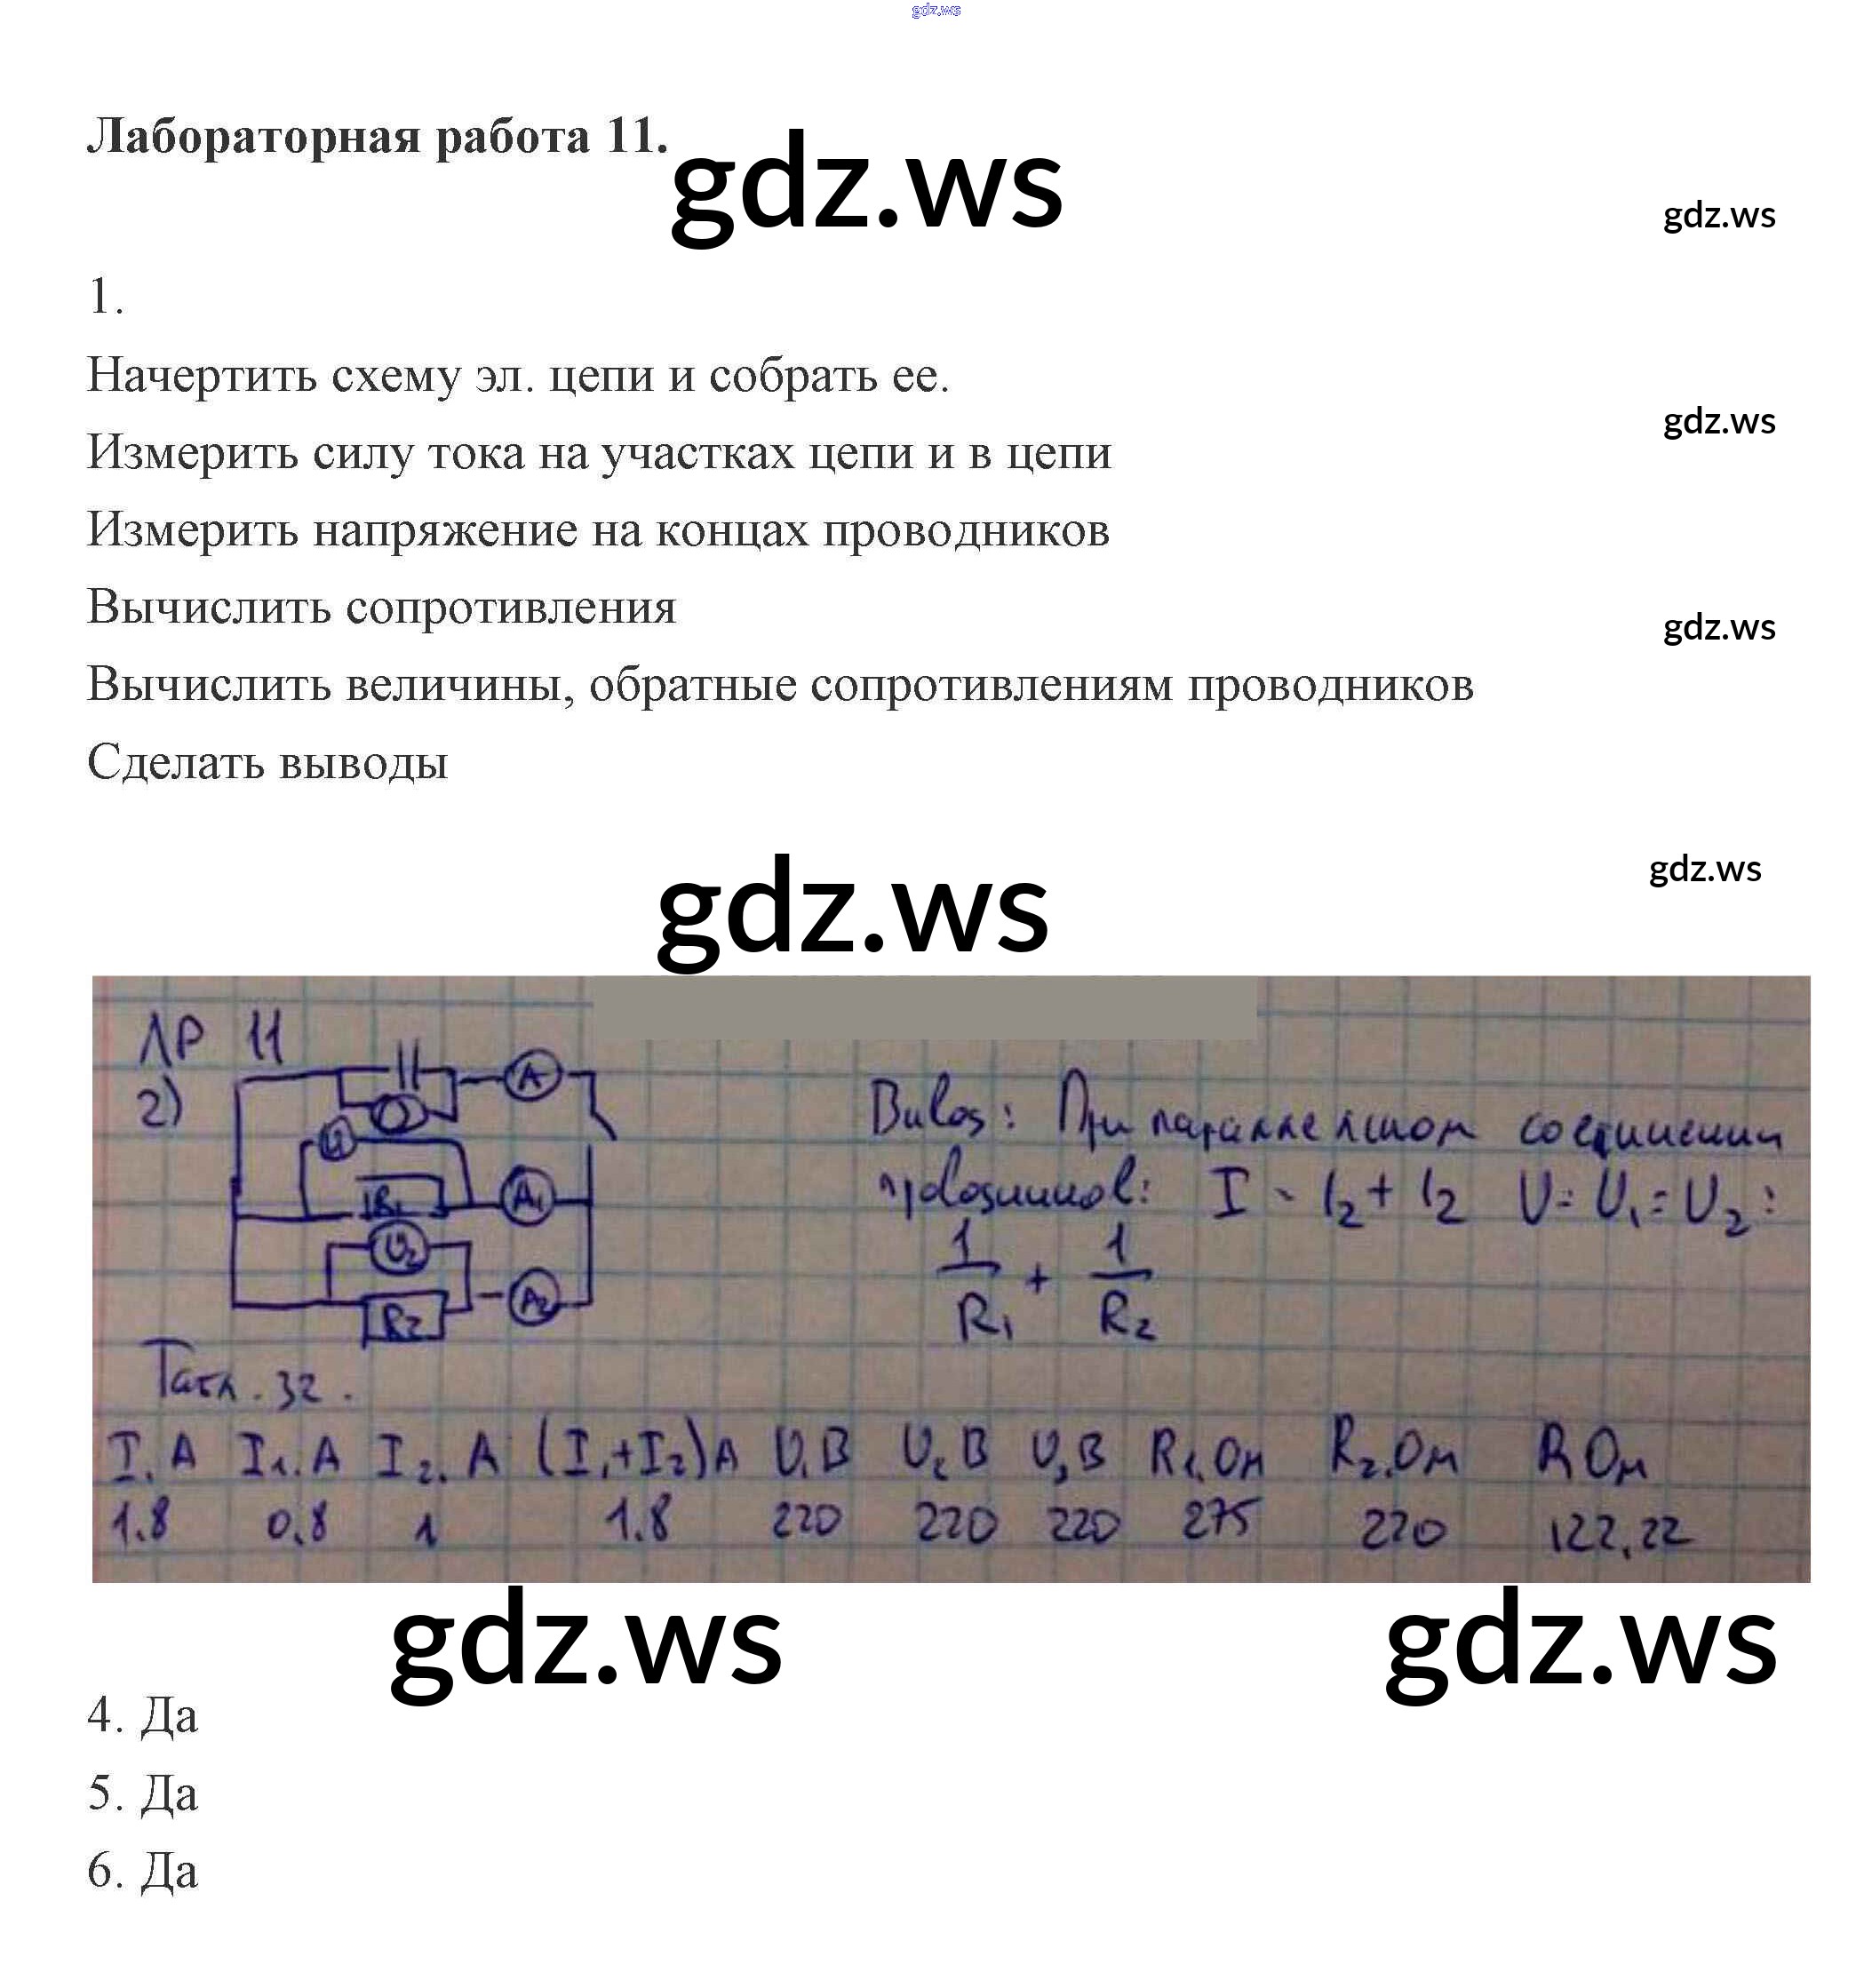 gdz.ws
Лабораторная работа 11.
gdz.ws
gdz.ws
1.
Начертить схему эл. цепи и собрать ее.
gdz.ws
Измерить силу тока на участках цепи и в цепи
Измерить напряжение на концах проводников
Вычислить сопротивления
gdz.ws
Вычислить величины, обратные сопротивлениям проводников
Сделать выводы
gdz.ws
gdz.ws
ЛР 11
2)
A
R1 A1
U2
R2 A2
При параллельном соединении
проводников: I - I2 + I2 U = U1 = U2 :
1/R1 + 1/R2
Табл. 32.
I. A I1. A I2. A (I1+I2) A U1 B U2 B U, B R1. Ом R2. Ом R Ом
1.8 0,8 1 1.8 220 220 220 275 220 122,22
gdz.ws gdz.ws
4. Да
5. Да
6. Да